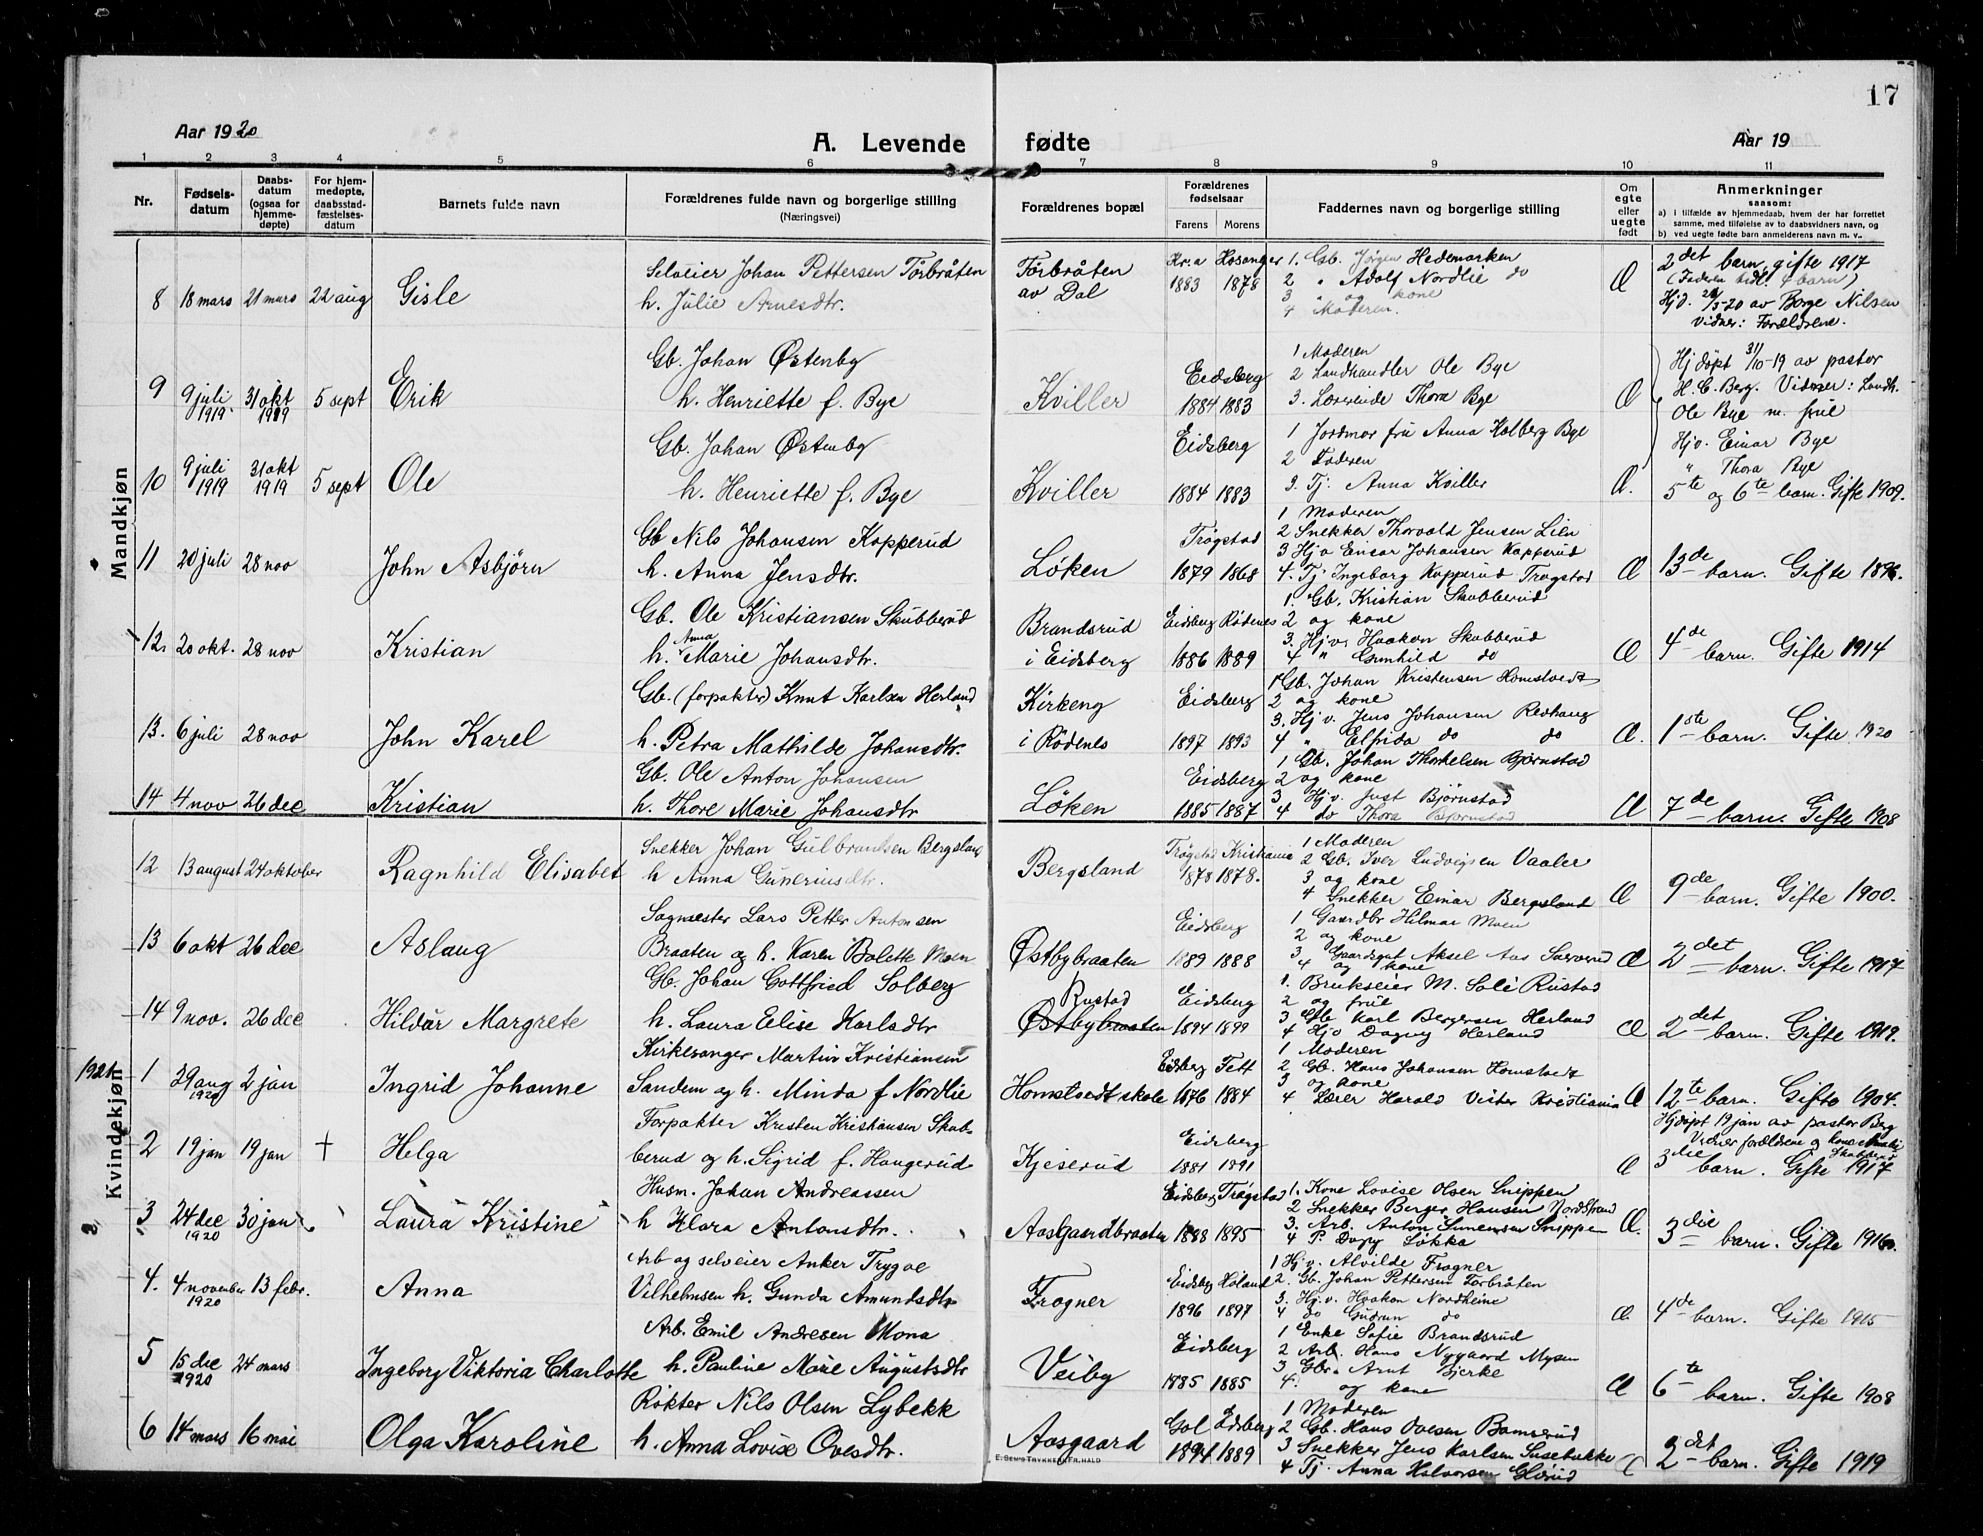 17
Aar 1920
A. Levende fødte
Aar 19
1 2 3 4 5 6 7 8 9 10 11
Nr.
Fødsels-
datum
Daabs-
datum
(ogsaa for
hjemme-
døpte)
For hjem-
medøpte,
daabsstad-
fæstelses-
datum
Barnets fulde navn
Forældrenes fulde navn og borgerlige stilling
(Næringsvei)
Forældrenes bopæl
Forældrenes
fødselsaar
Farens Morens
Faddernes navn og borgerlige stilling
Om
egte
eller
uegte
født
Anmerkninger
saasom:
a) i tilfælde av hjemmedaab, hvem der har forrettet
samme, med tilføielse av to daabsvidners navn, og
b) ved uegte fødte barn anmelderens navn m. v.
Mandkjøn
8 18 mars 21 mars 22 aug Gisle
Selveier Johan Pettersen Torbråten
h. Julie Arnesdtr.
Torbråten
av Dal
Kr.a Høsanger
1883 1878
1. Gb. Jørgen Hedemarken
2 " Adolf Nordlie do
3 " og kone
4 Moderen.
Æ
2det barn, gifte 1917
(Faderen tidl. barn)
Hjd. 21/3-20 av Borge Nilsen
Vidner: Forældrene.
9 9 juli 1919 31 okt 1919 5 sept Erik
Gb. Johan Østenby
h. Henriette f. Bye
Kviller
Eidsberg
1884 1883
1 Moderen
2 Landhandler Ole Bye
3. Lærerinde Thora Bye
Æ
Hjdøpt 31/10-19 av pastor
H. C. Berg. Vidner: Landh.
Ole Bye m. frue
10 9 juli 1919 31 okt 1919 5 sept Ole
Gb. Johan Østenby
h. Henriette f. Bye
Kviller
Eidsberg
1884 1883
1 Jordmor fru Anna Kolberg Bye
2 Faderen
3. Tj. Anna Kviller
Æ.
Hjv. Einar Bye
" Thora Bye
5te og 6te barn. Gifte 1909.
11 20 juli 28 nov John Asbjørn
Gb Nils Johansen Kopperud
h. Anna Jensdtr.
Løken
Trøgstad
1879 1868
1 Moderen
2 Snekker Thorvald Jensen Lien
3 Hjv Einar Johansen Kopperud
4. Tj. Ingeborg Kopperud Trøgstad
Æ
13de barn. Gifte 1896.
12. 20 okt. 28 nov Kristian
Gb. Ole Kristiansen Skubberud
h. Anna Marie Johansdtr.
Brandsrud
i Eidsberg
Eidsberg Rødenes
1886 1889
1. Gb. Kristian Skubberud
2 og kone
3. Hjv. Haakon Skubberud
4 " Gunhild do
Æ
4de barn. Gifte 1914
13. 6 juli 28 nov John Karel
Gb. (forpakter) Knut Karlsen Herland
h. Petra Mathilde Johansdtr.
Kirkeng
i Rødenes
Eidsberg
1897 1893
1 Gb. Johan Kristensen Homstvedt
2 og kone
3. Hj v. Jens Johansen Redhaug
4 " Elfrida do do
Æ.
1ste barn. Gifte 1920
14 4 nov 26 dec Kristian
Gb. Ole Anton Johansen
h. Thore Marie Johansdtr
Løken
Eidsberg
1885 1887
1 Gb. Johan Thorkelsen Bjørnstad
2 og kone
3 Hjv. Just Bjørnstad
4 do Thora Bjørnstad
Æ
7de barn. Gifte 1908
Kvindekjøn
12 13 august 24 oktober Ragnhild Elisabet
Snekker Johan Gulbrandsen Bergsland
h Anna Guneriusdtr.
Bergsland
Trøgstad Kristiania
1878 1878.
1 Moderen
2 Gb. Iver Ludvigsen Vaaler
3 og kone
4 Snekker Einar Bergsland
Æ
9de barn. Gifte 1900.
13 6 okt 26 dec Aslaug
Sagmester Lars Petter Antonsen
Braaten og h. Karen Bolette Moen
Østbybraaten
Eidsberg
1889 1888
1 Gaardbr Hilmar Moen
2 og kone
3 Gaardbr Aksel Aas
4 og kone
Æ
2det barn. Gifte 1917
14 9 nov. 26 dec Hildur Margrete
Gb. Johan Gottfried Solberg
h. Laura Elise Karlsdtr
Rustad
Østbybraaten
Eidsberg
1894 1899
1. Brukseier M. Solli Rustad
2 og frue
3 Gb Karl Bergersen Herland
4 Hjv Dagny Herland
Æ
2det barn. Gifte 1919.
1921
1 29 aug 1920 2 jan Ingrid Johanne
Kirkesanger Martin Kristiansen
Sandem og h. Minda f Nordlie
Homstvedt skole
Eidsberg Fett
1876 1884
1 Moderen
2 Gb. Hans Johansen Homstvedt
3 og kone
4 Lærer Harald Kristiania
Æ
12te barn. Gifte 1904.
2 19 jan 19 jan + Helga
Forpakter Kristen Kristiansen Skub-
berud og h. Sigrid f. Haugerud
Kjeserud
Eidsberg
1881 1891
Æ
Hjdøpt 19 jan av pastor Berg
Vidner forældrene og kone
Skubberud
3die barn. Gifte 1917
3 24 dec 1920 30 jan Laura Kristine
Husm. Johan Andreassen
h Klara Antonsdtr.
Aasgaardbraaten
Eidsberg Trøgstad
1888 1895
1. Kone Lovise Olsen Snippen
2 Snekker Berger Hansen Nordstrand
3. Arb. Anton Simensen Snippen
4 P. Dagny Løkka
Æ.
3die barn. Gifte 1916.
4. 4 november 1920 13 febr. Anna
Arb og selveier Anker Trygve
Vilhelmsen h. Gunda Amundsdtr
Frogner
Eidsberg Høland
1896 1897
1 Hj.v. Alvilde Frogner
2. Gb. Johan Pettersen Torbråten
3. Hj.v. Haakon Nordheine
4 do Gudrun do
Æ
4de barn. Gifte 1915
5 15 dec 1920 24 mars Ingeborg Viktoria Charlotte
Arb. Emil Andresen Mona
h. Pauline Marie Augustsdtr
Veiby
Eidsberg
1885 1885
1 Enke Sofie Brandsrud
2 Arb. Hans Nygaard Mysen
3 Gbr. Arnt Bjerke
4. og kone
Æ
6te barn. Gifte 1908
6 14 mars 16 mai Olga Karoline
Røkter Nils Olsen Lybekk
h. Anna Lovise Ovesdtr.
Aasgaard
Gol Edsberg
1894 1889
1 Moderen
2 Gb. Hans Ovesen Bamserud
3 Snekker Jens Karlsen Susebakke
4 Tj. Anna Halvorsen Glerud
Æ
2det barn. Gifte 1919
E. SEMS TRYKKERI, FR.HALD